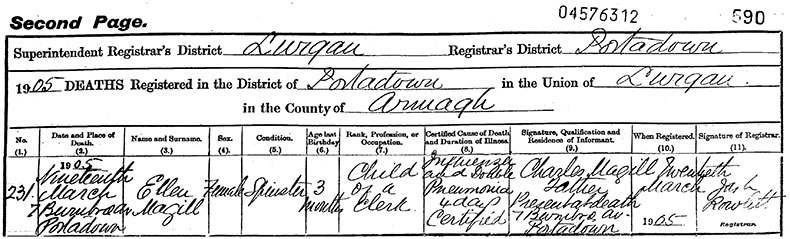 Second Page.
04576312
590
Superintendent Registrar's District Lurgan Registrar's District Portadown
1905 DEATHS Registered in the District of Portadown in the Union of Lurgan
in the County of Armagh
No. Date and Place of Death. Name and Surname. Sex. Condition. Age last Birthday Rank, Profession, or Occupation. Certified Cause of Death and Duration of Illness. Signature, Qualification and Residence of Informant. When Registered. Signature of Registrar.
(1.) (2.) (3.) (4.) (5.) (6.) (7.) (8.) (9.) (10.) (11.)
231
1905
Nineteenth
March
7
Portadown
Ellen
Magill
Female
Spinster
3
months
Child
of a
Clerk
Influenza
and Double
Pneumonia
4 days
Certified
Charles Magill
Father
Present at death
7 av
Portadown
Twentieth
March
1905
Rowlett
Registrar.